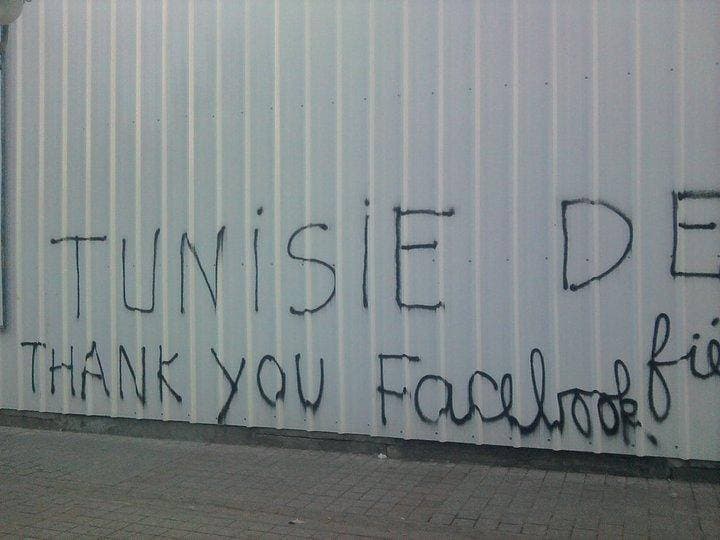 TUNiSiE DE
THANK YOU Facebook. fiè